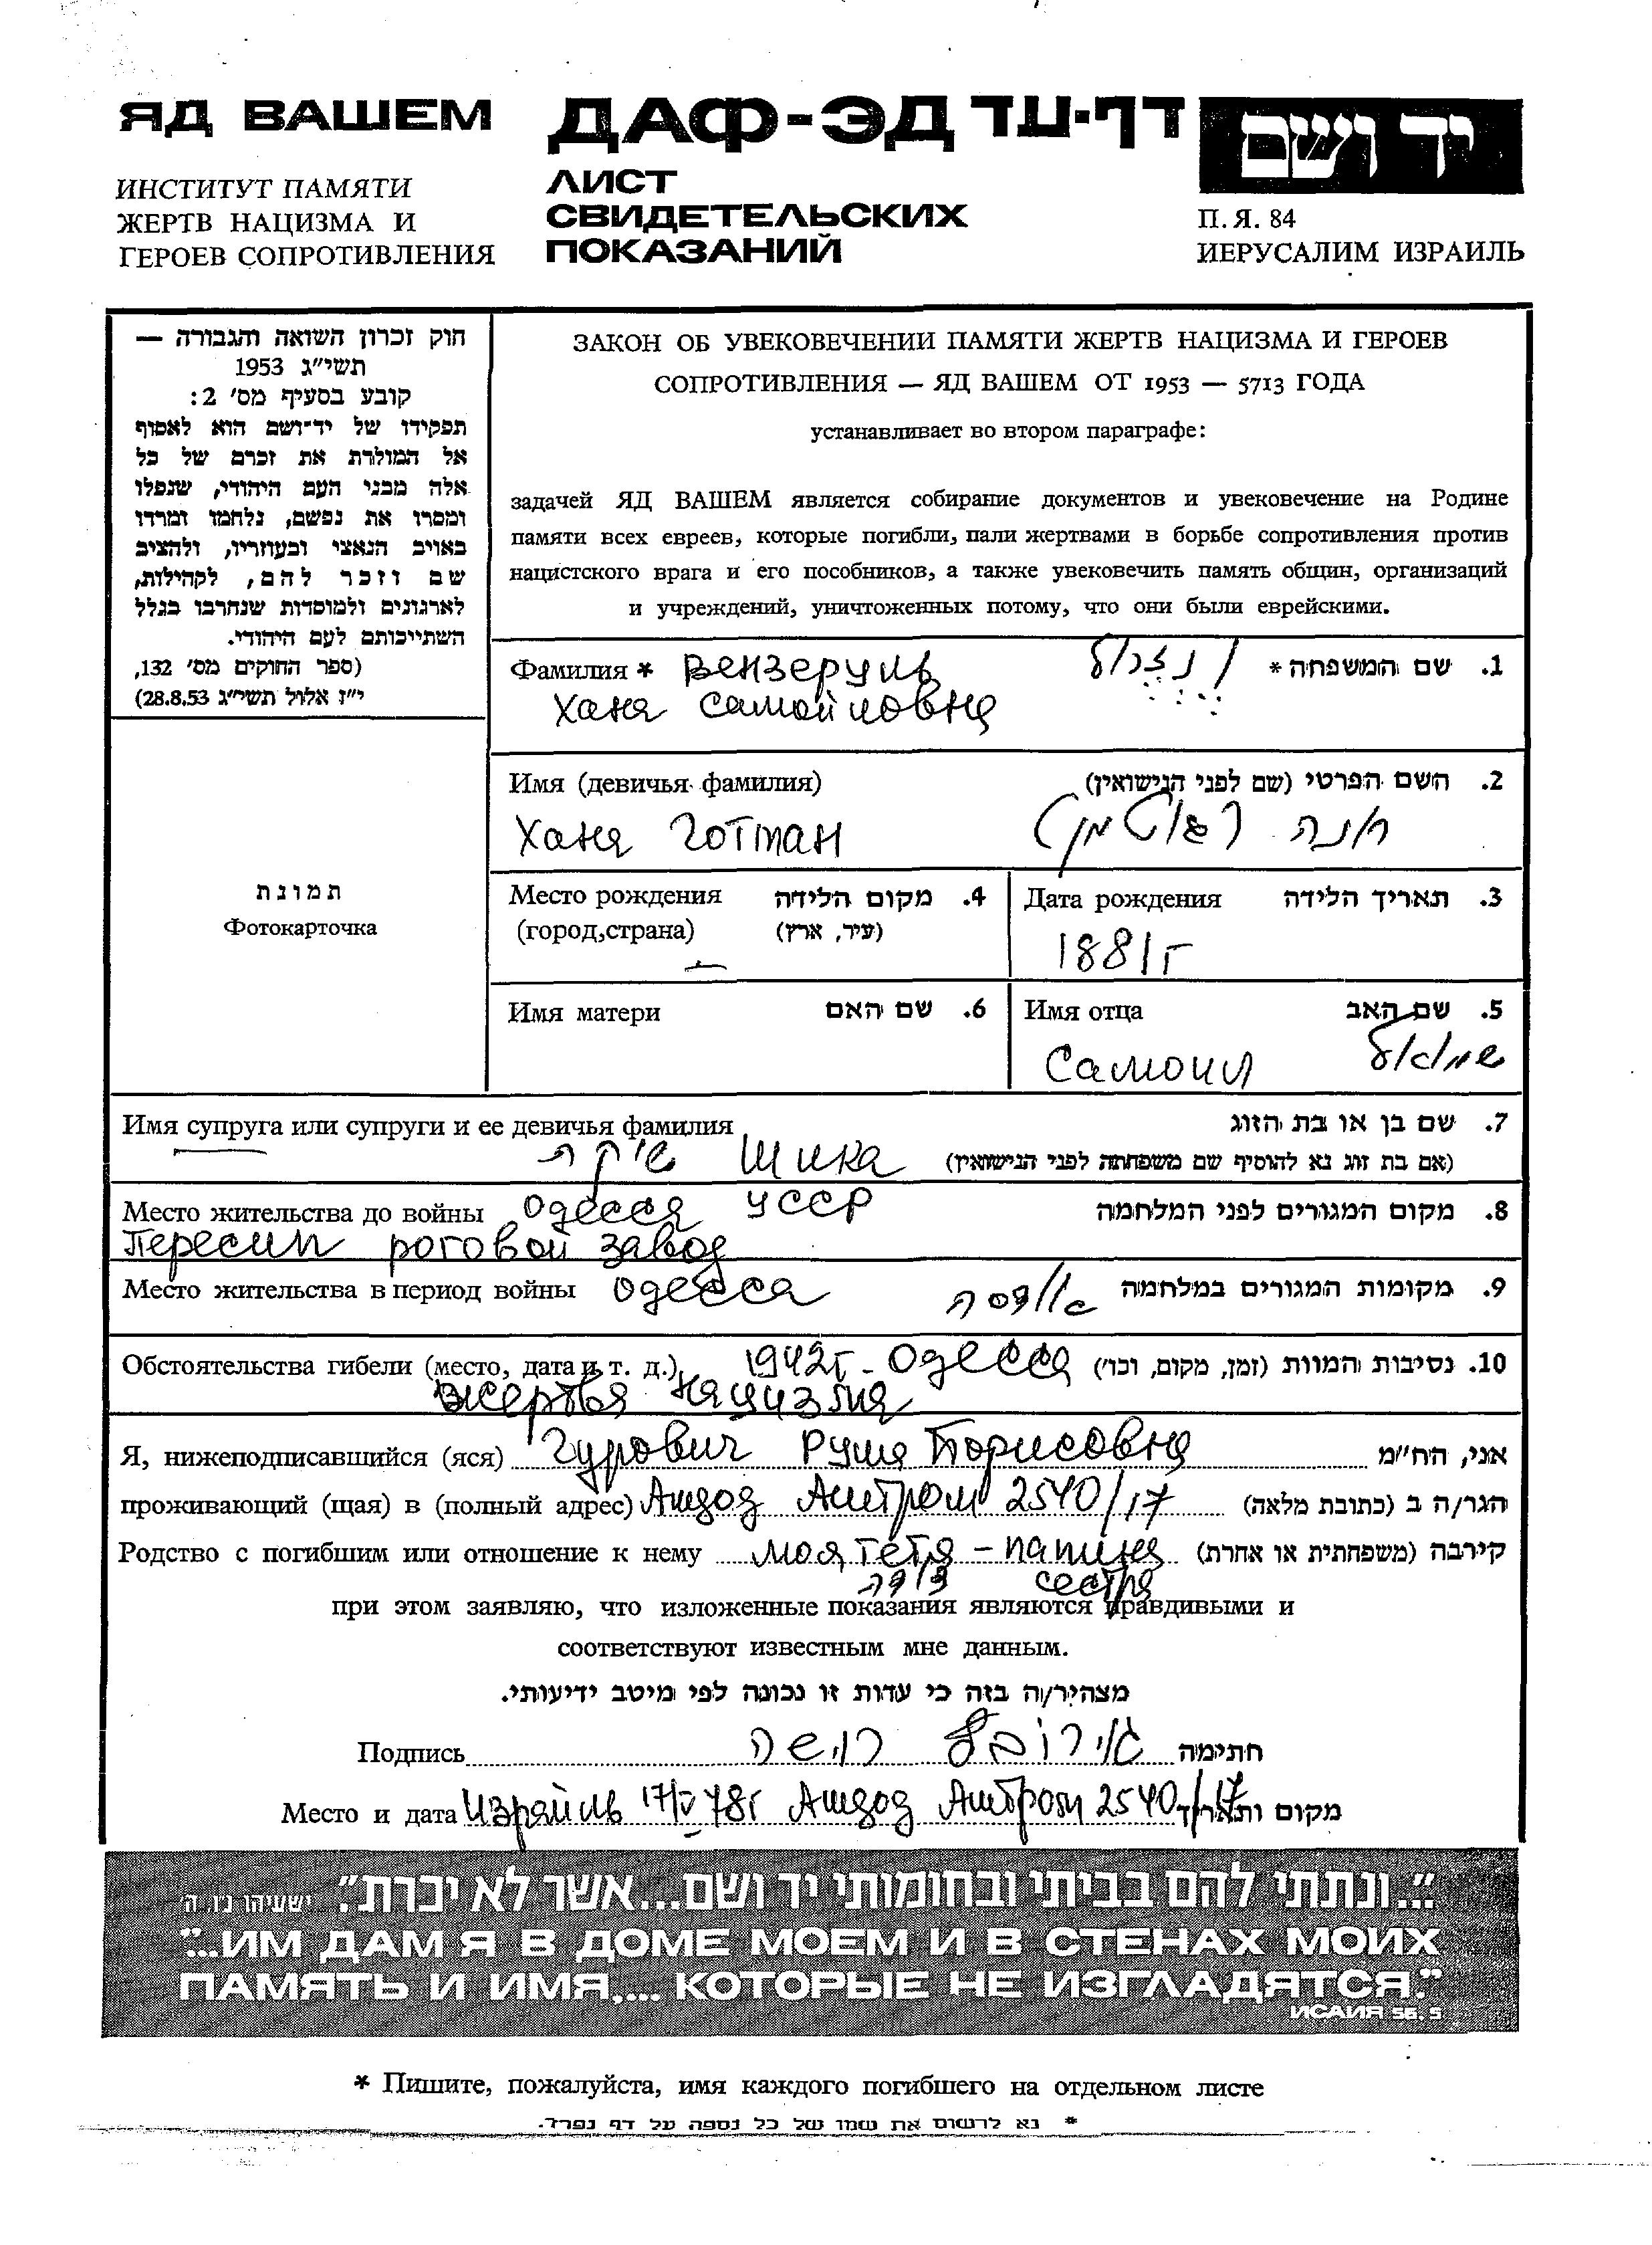 ЯД ВАШЕМ
ДАФ-ЭД דף-עד
יד ושם
ИНСТИТУТ ПАМЯТИ
ЖЕРТВ НАЦИЗМА И
ГЕРОЕВ СОПРОТИВЛЕНИЯ
ЛИСТ
СВИДЕТЕЛЬСКИХ
ПОКАЗАНИЙ
П. Я. 84
ИЕРУСАЛИМ ИЗРАИЛЬ
חוק זכרון השואה והגבורה —
תשי״ג 1953
קובע בסעיף מס׳ 2:
תפקידו של יד־ושם הוא לאסוף
אל המולדת את זכרם של כל
אלה מבני העם היהודי, שנפלו
ומסרו את נפשם, נלחמו ומרדו
באויב הנאצי ובעוזריו, ולהציב
שם וזכר להם, לקהילות,
לארגונים ולמוסדות שנחרבו בגלל
השתייכותם לעם היהודי.
(ספר החוקים מס׳ 132,
י״ז אלול תשי״ג 28.8.53)
ЗАКОН ОБ УВЕКОВЕЧЕНИИ ПАМЯТИ ЖЕРТВ НАЦИЗМА И ГЕРОЕВ
СОПРОТИВЛЕНИЯ — ЯД ВАШЕМ ОТ 1953 — 5713 ГОДА
устанавливает во втором параграфе:
задачей ЯД ВАШЕМ является собирание документов и увековечение на Родине
памяти всех евреев, которые погибли, пали жертвами в борьбе сопротивления против
нацистского врага и его пособников, а также увековечить память общин, организаций
и учреждений, уничтоженных потому, что они были еврейскими.
Фамилия * Вензеруль 1. שם המשפחה *
Ханя Самойловна
Имя (девичья фамилия) 2. השם הפרטי (שם לפני הנישואין)
Ханя Готман חנה (גוטמן)
תמונת
Фотокарточка
Место рождения 4. מקום הלידה
(город,страна) (עיר, ארץ)
—
Дата рождения 3. תאריך הלידה
1881 г
Имя матери 6. שם האם
Имя отца 5. שם האב
Самоил שמואל
Имя супруга или супруги и ее девичья фамилия 7. שם בן או בת הזוג
שיקה Шика (אם בת זוג נא להוסיף שם משפחתה לפני הנישואין)
Место жительства до войны Одесса УССР 8. מקום המגורים לפני המלחמה
Пересип роговой завод
Место жительства в период войны Одесса אודסה 9. מקומות המגורים במלחמה
Обстоятельства гибели (место, дата и т. д.) 1942г - Одесса 10. נסיבות המוות (זמן, מקום, וכו׳)
жертва нацизма
Я, нижеподписавшийся (яся) Гурович Руша Борисовна אני, הח״מ
проживающий (щая) в (полный адрес) Ашдод Аштром 2540/17 הגר/ה ב (כתובת מלאה)
Родство с погибшим или отношение к нему моя тетя - папина קירבה (משפחתית או אחרת)
דודה сестра
при этом заявляю, что изложенные показания являются правдивыми и
соответствуют известным мне данным.
מצהיר/ה בזה כי עדות זו נכונה לפי מיטב ידיעותי.
Подпись רושה חתימה
Место и дата Израиль 17/V 78г Ашдод Аштром 2540/17 מקום ותאריך
״...ונתתי להם בביתי ובחומותי יד ושם...אשר לא יכרת״. ישעיהו נ״ו, ה׳
"...ИМ ДАМ Я В ДОМЕ МОЕМ И В СТЕНАХ МОИХ
ПАМЯТЬ И ИМЯ.... КОТОРЫЕ НЕ ИЗГЛАДЯТСЯ."
ИСАИЯ 56. 5
* Пишите, пожалуйста, имя каждого погибшего на отдельном листе
* נא לרשום את שמו של כל נספה על דף נפרד.